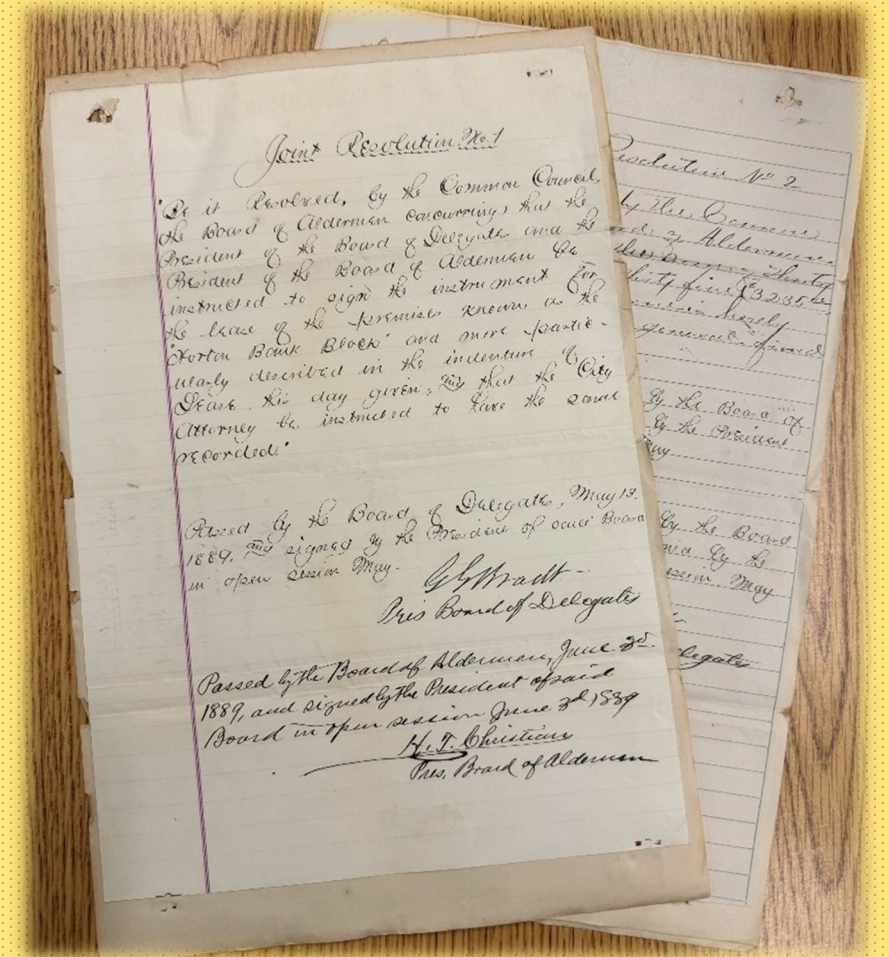 Joint Resolution No. 1
"Be it Resolved, by the Common Council,
the Board of Aldermen concurring, that the
President of the Board of Delegates and the
President of the Board of Aldermen be
instructed to sign the instrument for
the lease of the premises known as the
"Norton Bank Block" and more partic-
ularly described in the indenture of
Lease this day given, and that the City
Attorney be instructed to have the same
recorded."
Passed by the Board of Delegates, May 13.
1889. and signed by the President of said Board
in open session May.
Pres Board of Delegates
Passed by the Board of Aldermen, June 3d
1889, and signed by the President of said
Board in open session June 3d 1889
H. T. Christian
Pres. Board of Aldermen
Resolution No 2
by the Common
of Aldermen
thirty
thirty five
hereby
general fund
by the Board of
by the President
May
by the Board
by the
session May
Delegates